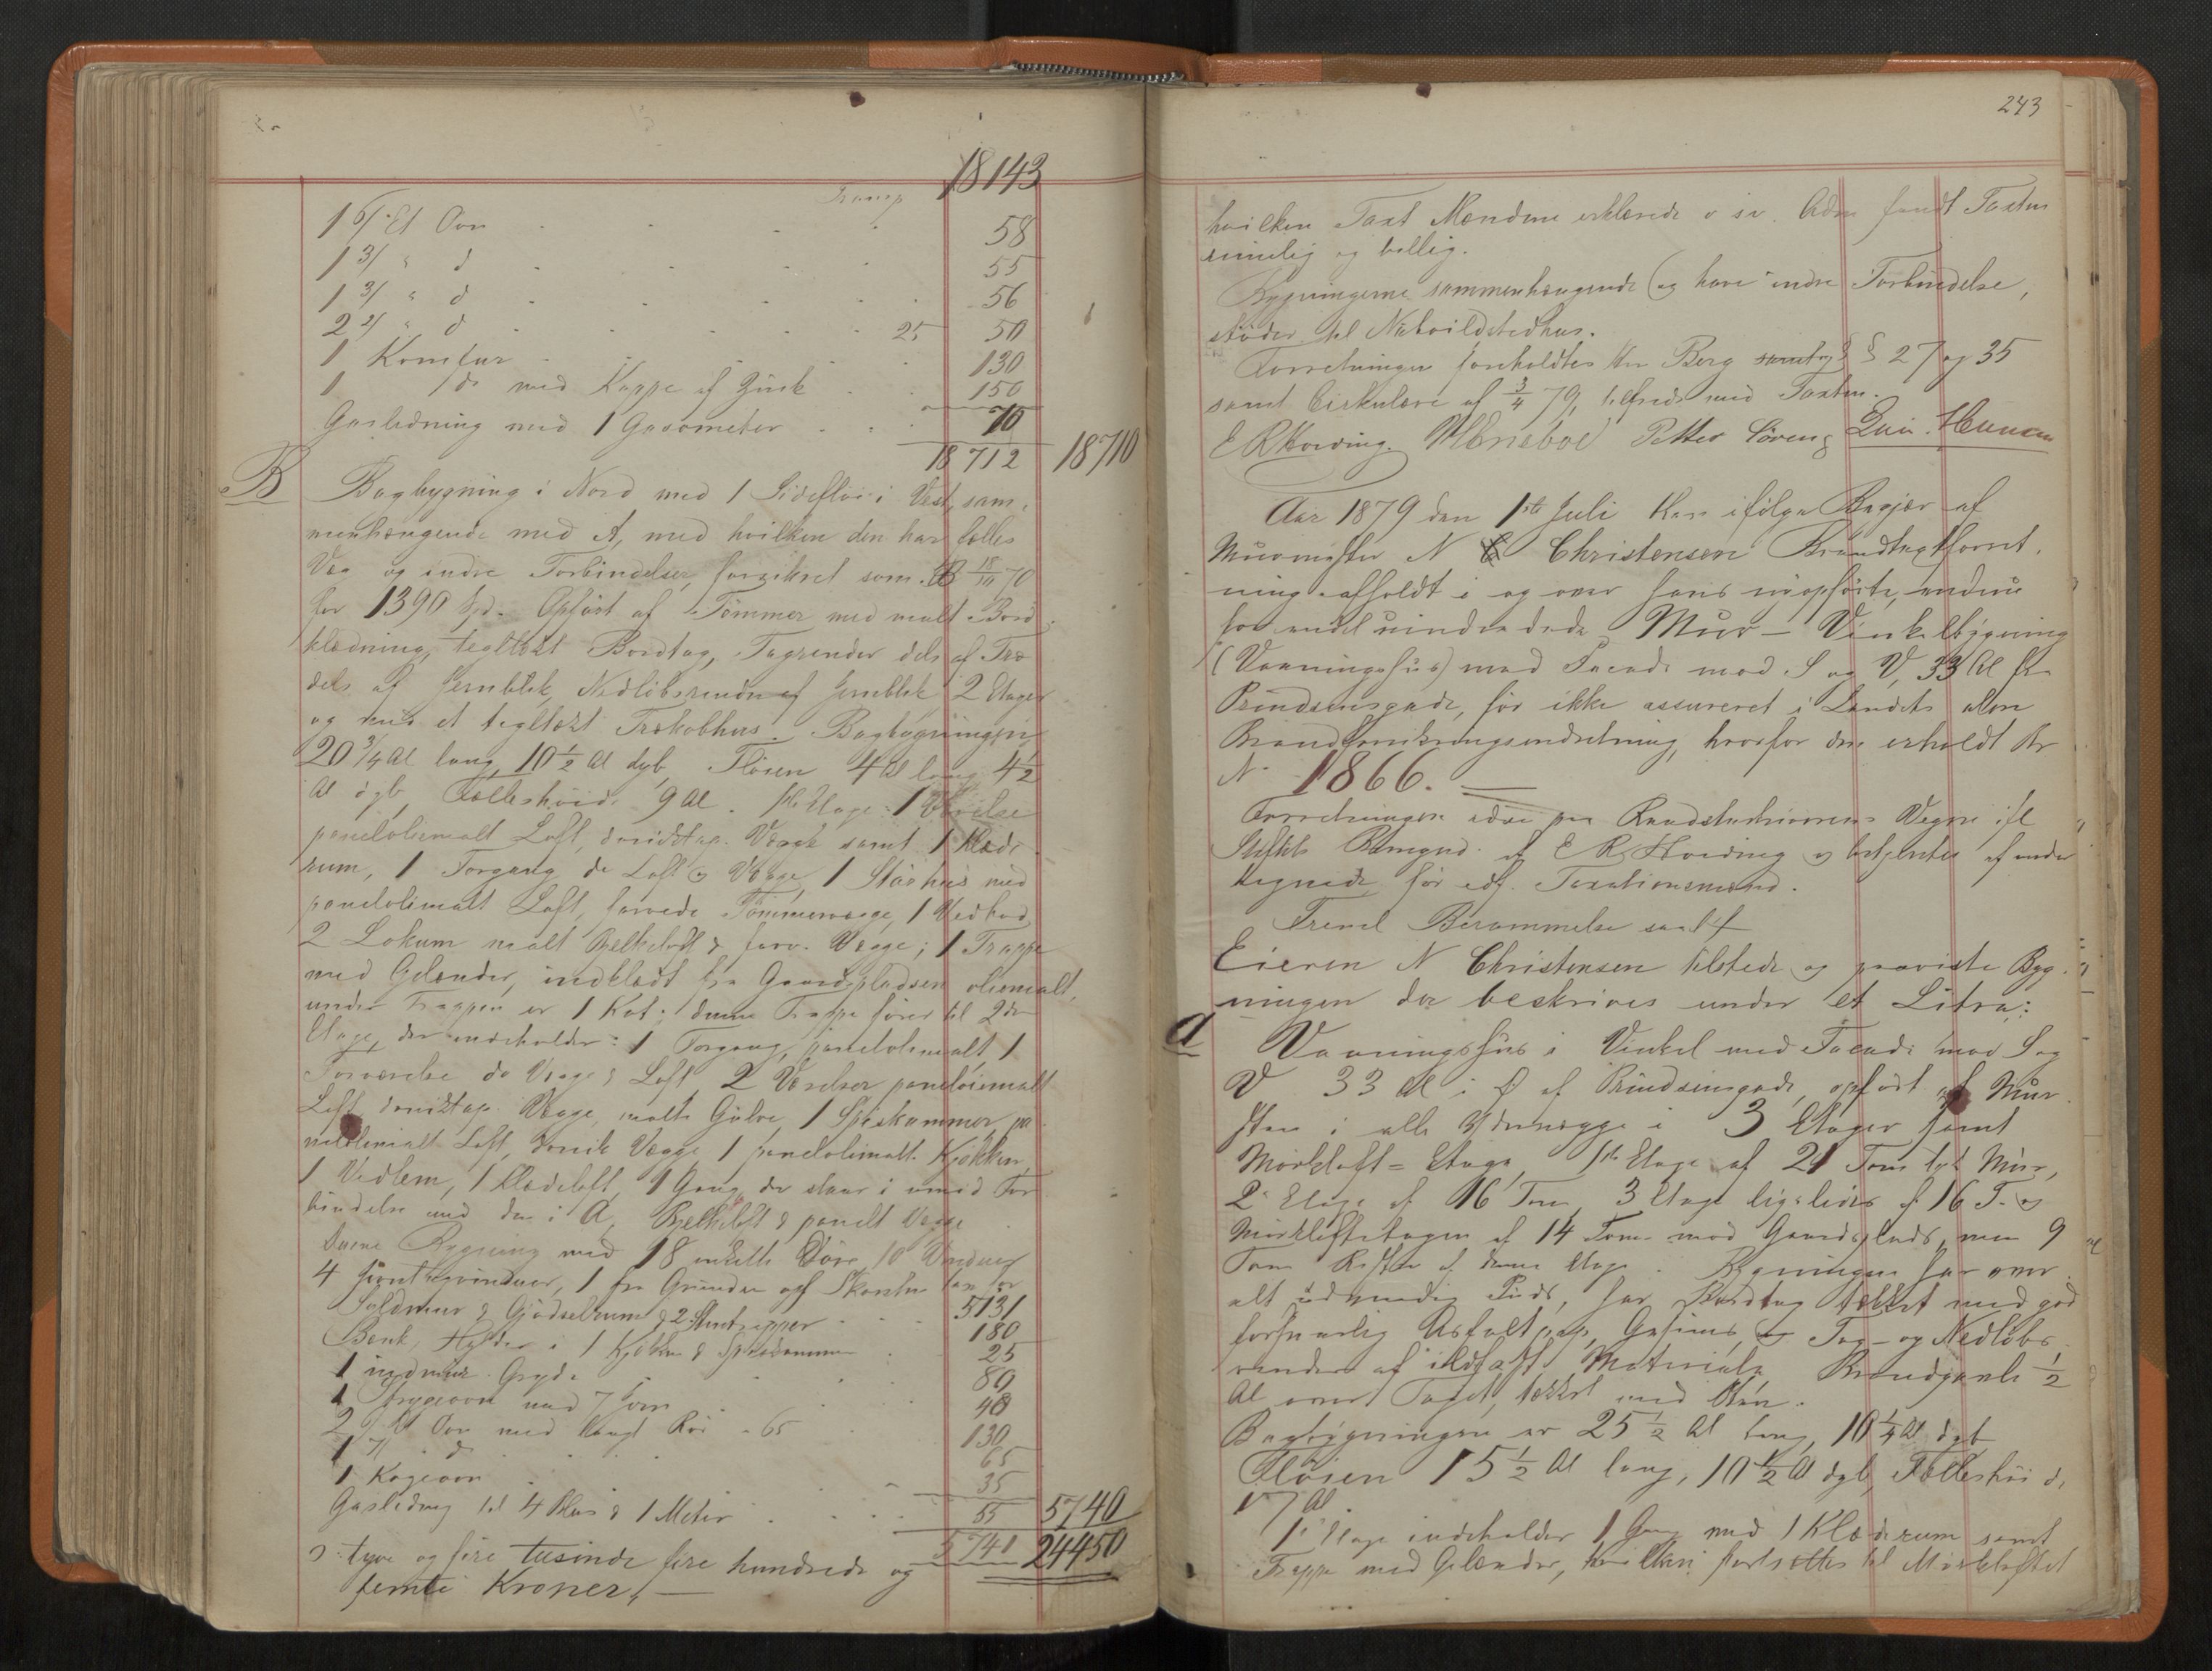 18143
Transp
1 6/ Et Ovn 58
1 3/ " d 55
1 3/ " d 56
2 2/ " d 25 50
1 Komfur 130
1 do med Kappe af Zink 150
Gasledning med 1 Gasometer 70
18712 18710
B Bagbygning i Nord med 1 Sidefløi i Vest, sam-
menhængende med A, med hvilken den har fælles
Væg og indre Forbindelser, forsikret som B 18/10 70
for 1390 Spd. Opført af Tømmer med malt Bord-
klædning, teglteækt Bordtag, Tagrender dels af Træ
dels af Jernblik, Nedløbsrender af Jernblik 2 Etager
og et tegltækt Bagbygningen
20 3/4 Al lang, 10 1/2 Al dyb, Fløien 4 Al lang 4 1/2
Al dyb, Fælleshøide 9 Al. 1ste Etage: 1 Værelse
paneloliemalt Loft, Vægge samt 1 Klæde-
rum, 1 Forgang do Loft og Vægge, 1 med
paneloliemalt Loft, farvede Tømmervægge, 1 Vedbod
2 Lokum malt Bjelkeloft & farv. Vægge; 1 Trappe
med Gelænder, indklædt fra Gaardspladsen oliemalt,
under Trappen er 1 Kot; denne Trappe fører til 2den
Etage, der indeholder: 1 Forgang, paneloliemalt, 1
Forværelse do Vægge & Loft, 2 Værelser paneloliemalt
Loft, Vægge, malte Gulve, 1 Spiskammer pa-
neloliemalt Loft, Vægge 1 paneloliemalt Kjøkken,
1 Vedlem, 1 Klædeloft, 1 Gang, der staar i For-
bindelse med den i A, Bjelkeloft & panelt Vægge
Denne Bygning med 18 enkelte Døre, 10 Vinduer
4 1 fra Grunden opf Skorsten tax for 5131
Ildmur & Gjødselrum & 2 180
Bænk, Hylder i 1 Kjøkken & Spiskammer 25
1 indmur. Gryde 80
1 Strygeovn med 7 Jern 40
2 Et Ovn med Rør 65 130
1 d 65
1 Kogeovn 35
Gasledning til 4 Blus & 1 Meter 55 5740
5741 24450
ɔ: tyve og fire tusinde fire hundrede og
femti Kroner,
243
hvilken Taxt Mændene erklærede o sv. Adm fandt Taxten
rimelig og billig.
Bygningerne sammenhængende (og have indre Forbindelse,
støder til
Forretningen foreholdtes Hr Berg § 27 og 35
samt Cirkulære af 3/4 79, tilfreds med Taxten.
E R Hoeding. Petter Sørens
Aar 1879 den 1ste Juli blev ifølge Begjær af
Murmester N Christensen Brandtaxtforret-
ning afholdt i og over hans nyopførte, endnu
for endel uindredede Mur- Vinkelbygning
(Vaaningshus) med Facade mod S og V, 33 Al fra
Prindsensgade, før ikke assureret i Landets alm
Brandforsikringsindretning, hvorfor den erholdt Br
No 1866.
Forretningen adm paa Raadstuskriverens Vegne ifl
Stiftets Bemynd. af E R Hoeding og betjentes af under-
tegnede før edf. Taxationsmænd.
Freml Berammelse saal
Eieren N Christensen tilstede og paaviste Byg-
ningen der beskrives under et Litra:
A Vaaningshus i Vinkel med Facade mod S og
V 33 Al i Ø af Prindsensgade, opført af Mur-
sten i alle Ydervægge i 3 Etager samt
Mørkloft-Etage, 1ste Etage af 21 Tom tyk Mur,
2den Etage af 16 Tom, 3 Etage ligeledes af 16 T. og
Mørkloftetagen af 14 Tom mod Gaardsplads, men 9
Tom Resten af denne Etage. Bygningen har over-
alt udvendig Puds, har Bordtag tækket med god
forsvarlig Asfaltpap, Gesims, og Tag- og Nedløbs-
render af ildfast Materiale, Brandgavle 1/2
Al over Taget, tækket med Sten.
Bagbygningen er 25 1/2 Al lang, 10 1/4 Al dyb
Fløien 15 1/2 Al lang, 10 1/2 Al dyb, Fælleshøide
17 Al.
1ste Etage indeholder 1 Gang med 1 Klæderum samt
Trappe med Gelænder, hvilken fortsættes til Mørkloftet